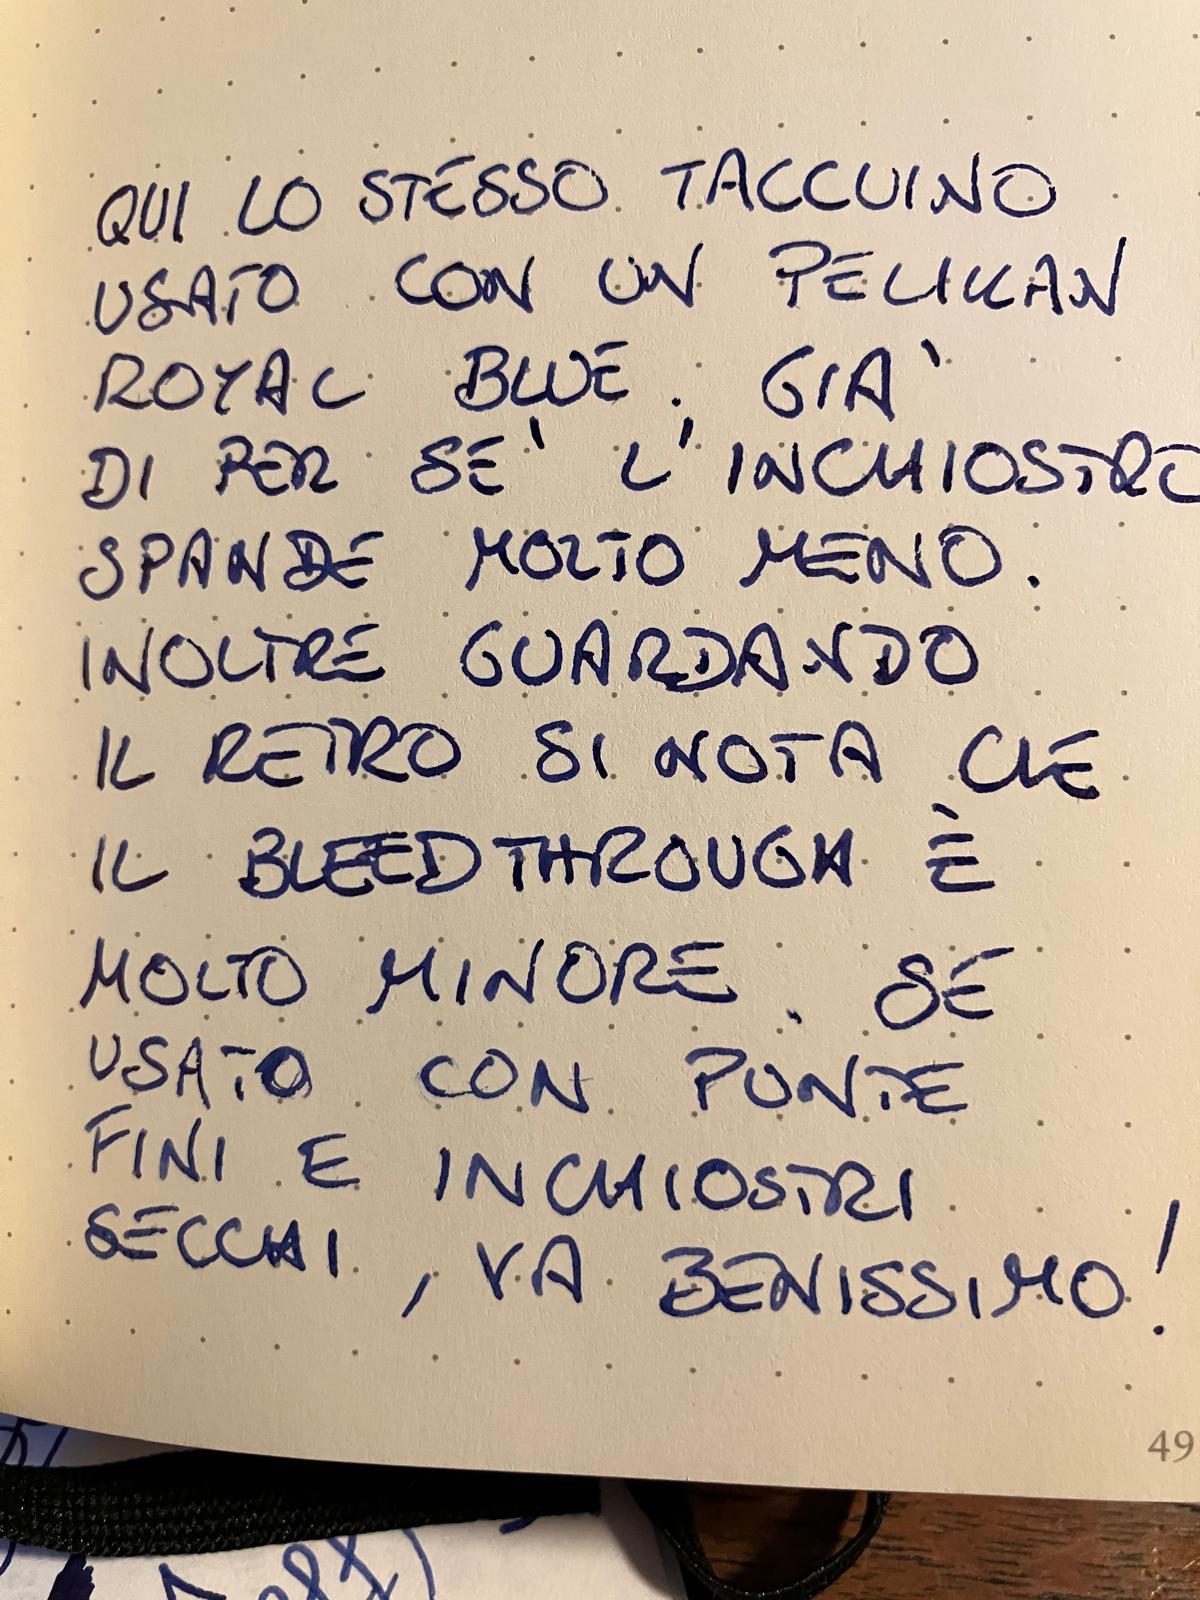 QUI LO STESSO TACCUINO
USATO CON UN PELIKAN
ROYAL BLUE. GIA'
DI PER SE' L'INCHIOSTRO
SPANDE MOLTO MENO.
INOLTRE GUARDANDO
IL RETRO SI NOTA CHE
IL BLEEDTHROUGH È
MOLTO MINORE. SE
USATO CON PUNTE
FINI E INCHIOSTRI
SECCHI, VA BENISSIMO!
49